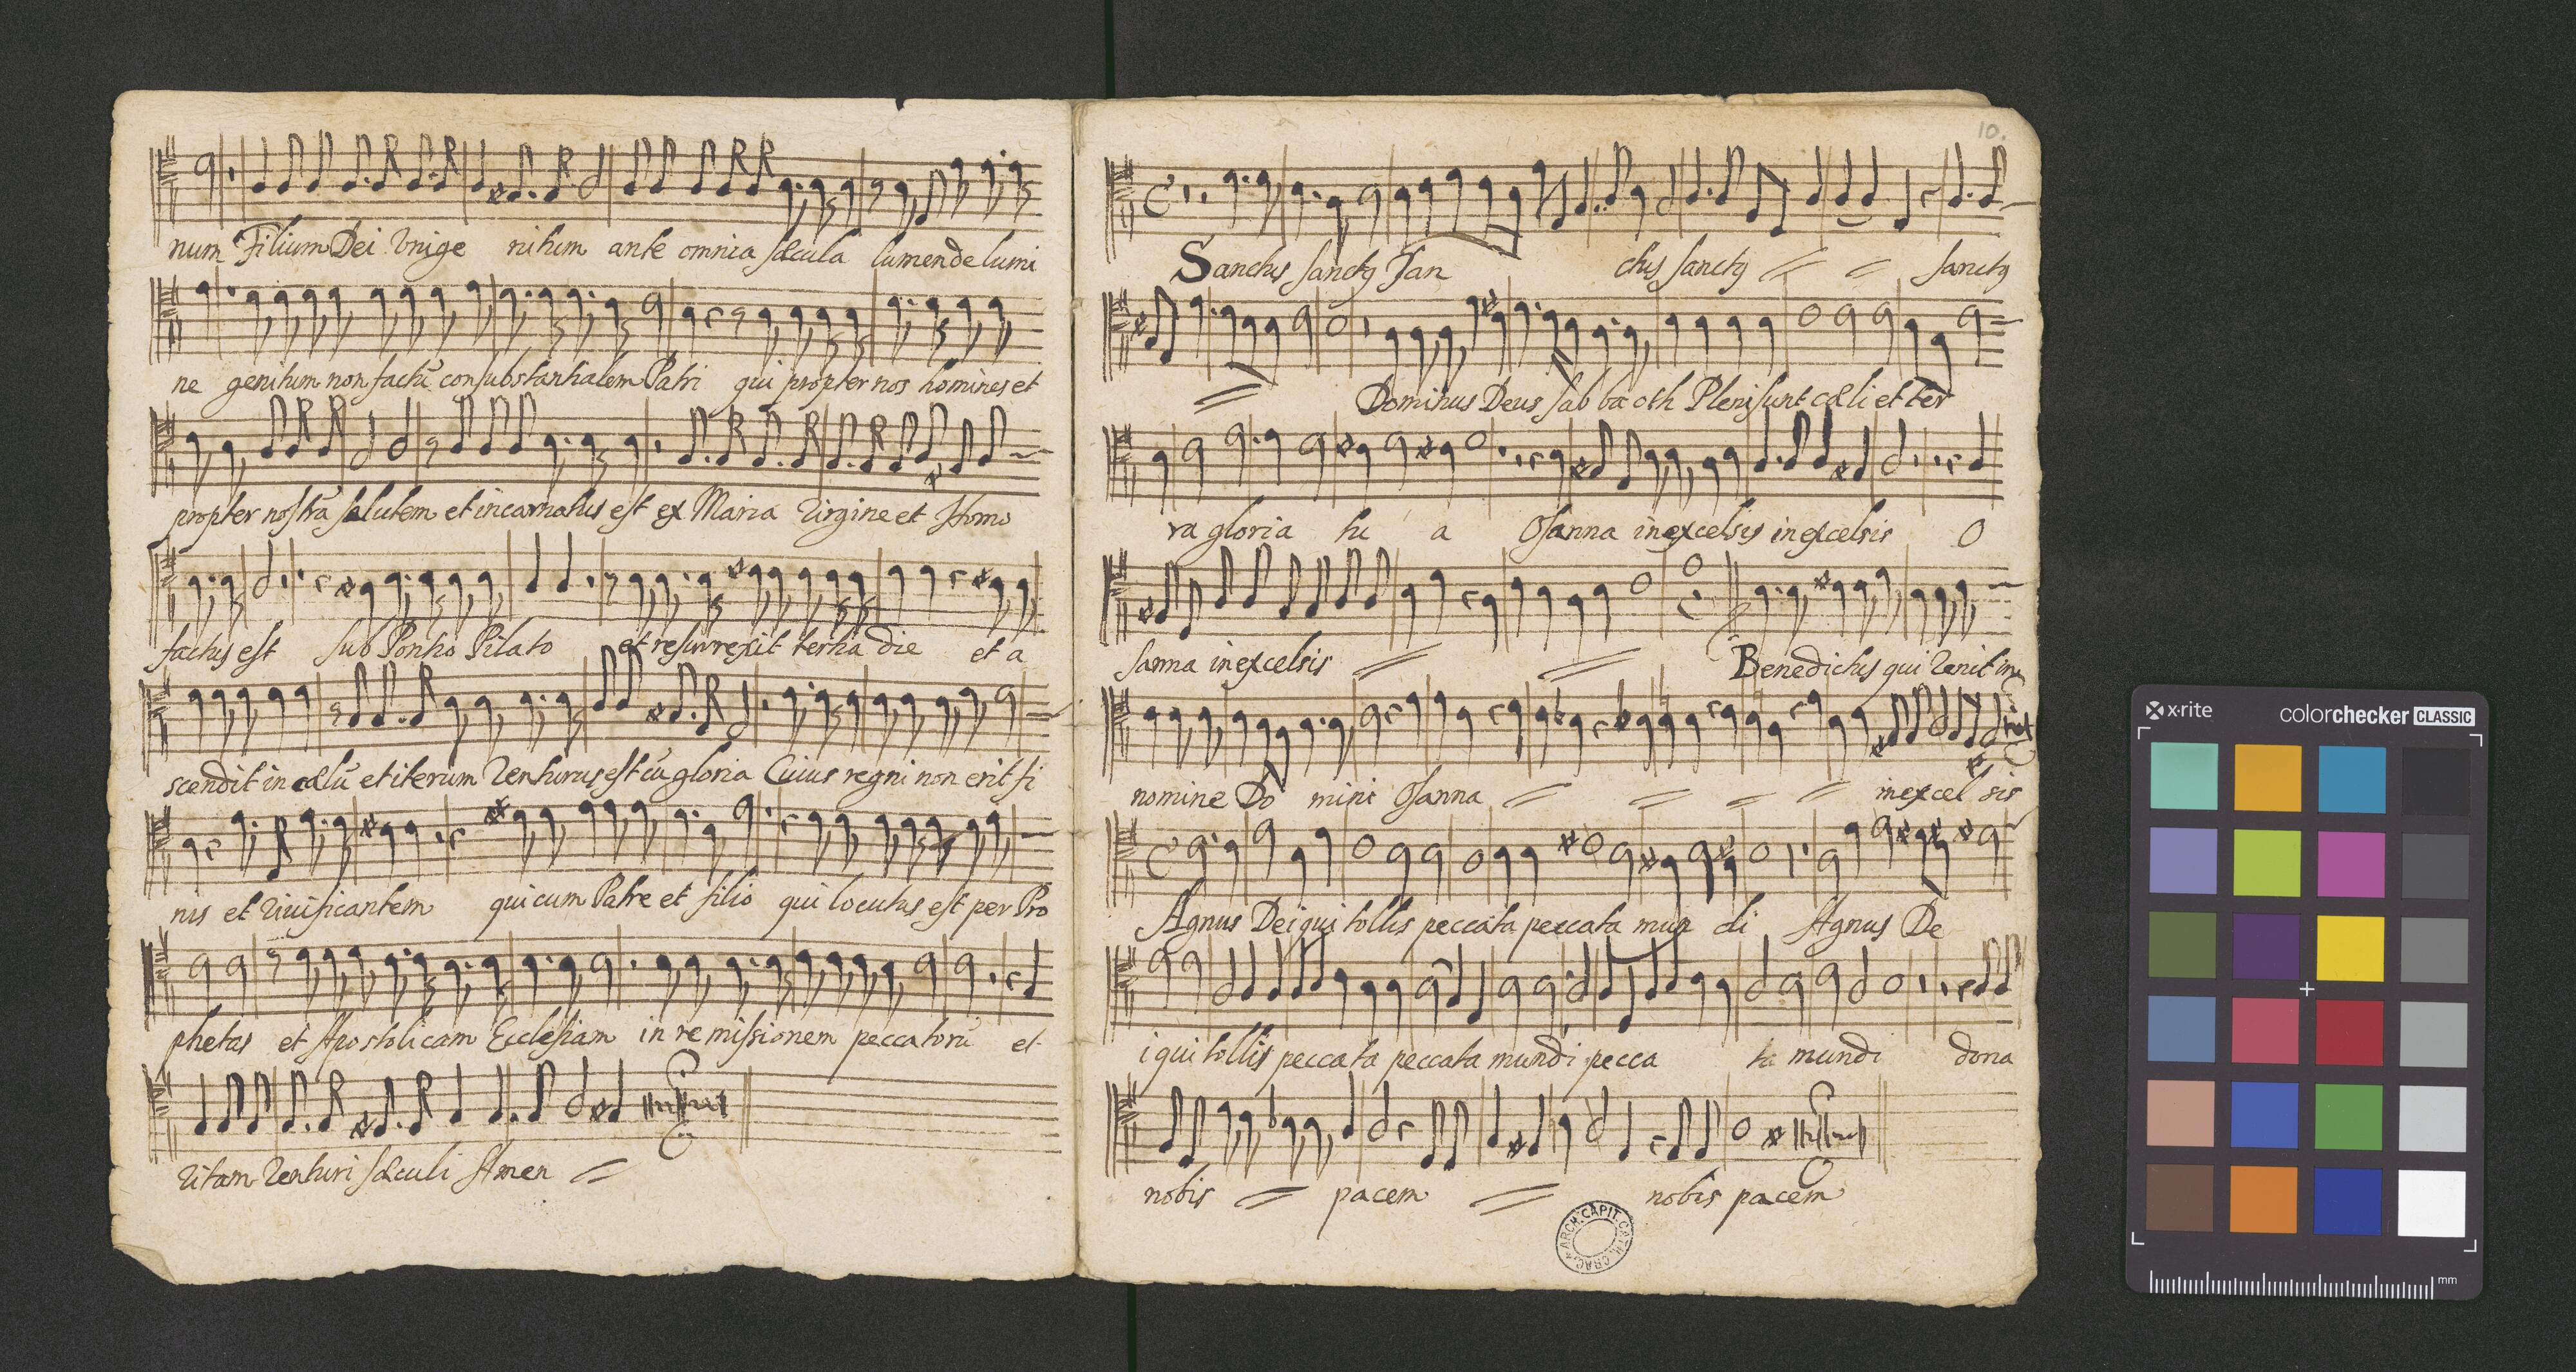 num Filium Dei Unige nitum ante omnia sæcula lumen de lumi
ne genitum non factũ consubstantialem Patri qui propter nos homines et
propter nostrã salutem et incarnatus est ex Maria Virgine et Homo
factus est sub Pontio Pilato et resurrexit tertia die et a
scendit in cælũ et iterum Venturus est cũ gloria Cuius regni non erit fi
nis et Vivificantem qui cum Patre et filio qui locutus est per Pro
phetas et Apostolicam Ecclesiam in remissionem peccatorũ et
Vitam Venturi sæculi Amen
10.
Sanctus sanctꝯ San ctus sanctꝯ sanctꝯ
Dominus Deus sabbaoth Pleni sunt cæli et ter
ra gloria tu a Osanna in excelsis in excelsis O
sanna in excelsis Benedictus qui Venit in
nomine Do mini Osanna in excel sis
Agnus Dei qui tollis peccata peccata mun di Agnus De
i qui tollis peccata peccata mundi pecca ta mundi dona
nobis pacem nobis pacem
ARCH. CAPIT. CATH. CRAC.
x·rite colorchecker CLASSIC
mm